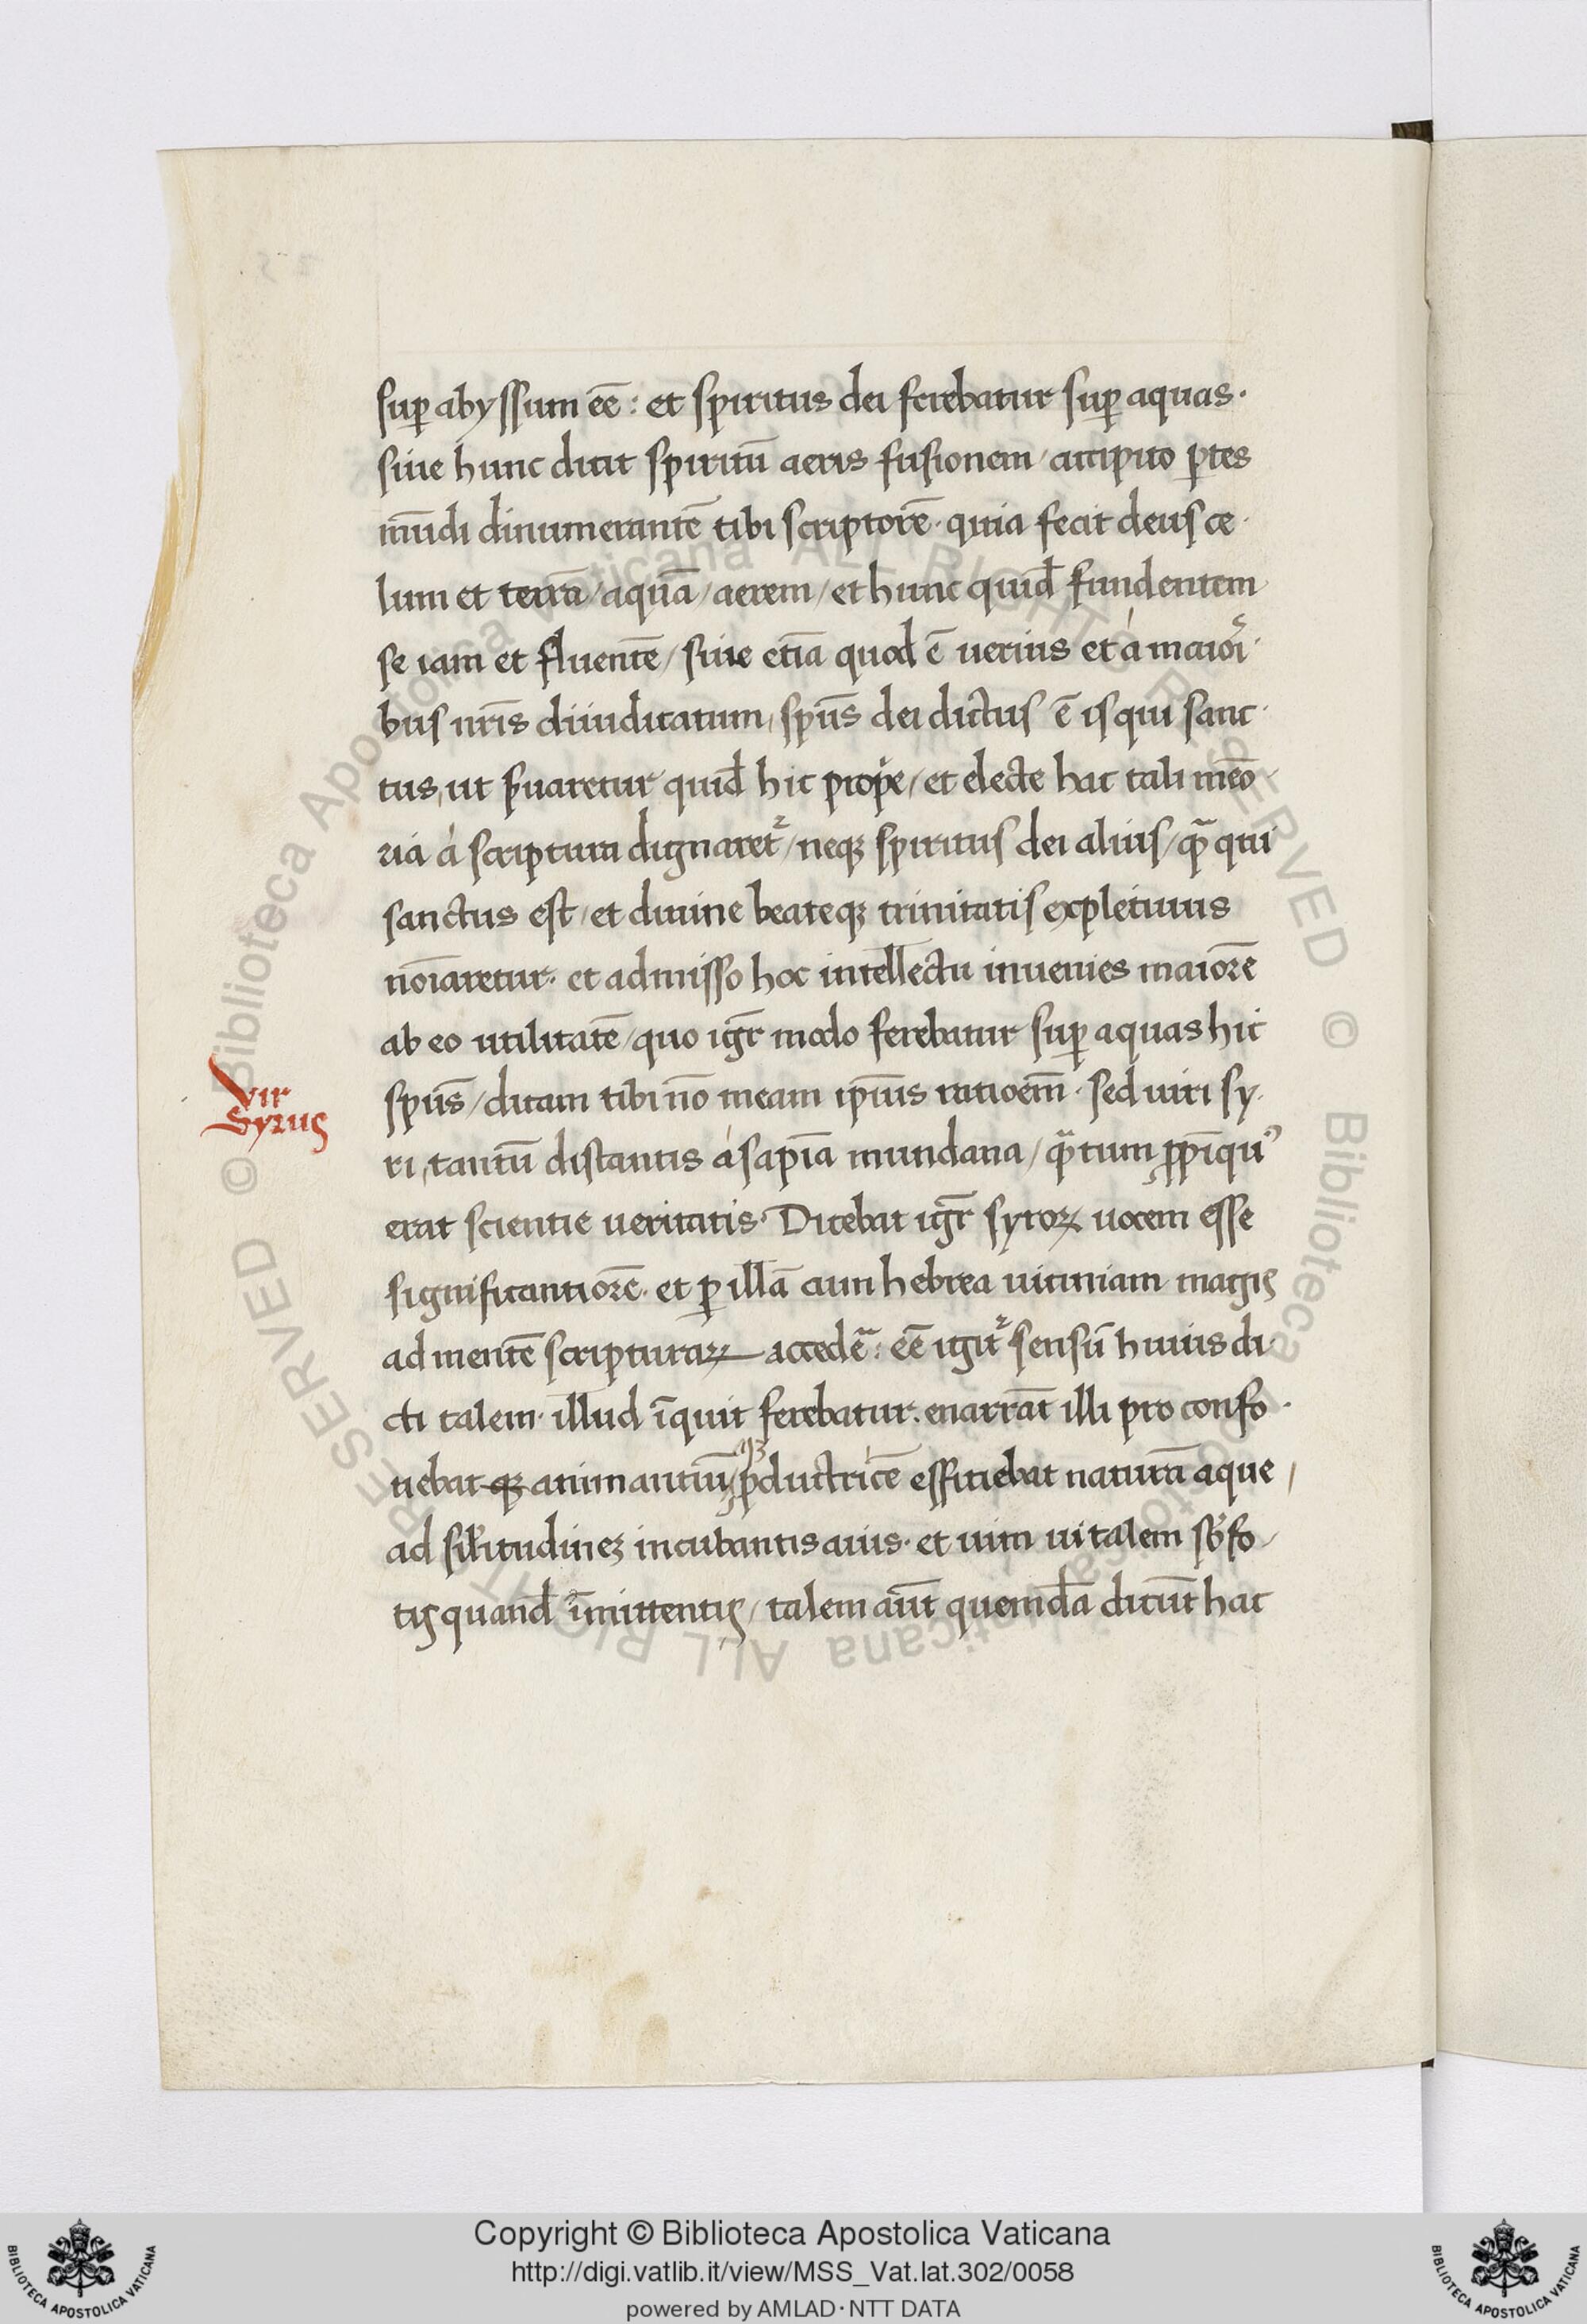 suꝑ abyssum eē: et spiritus dei ferebatur suꝑ aquas·
siue hunc dicit spiritū aeris fusionem / accipito ꝑtes
mūdi dinumerantē tibi scriptorē· quia fecit deus ce·
lum et terrā / aquā / aerem / et hunc quid̄ fundentem
se iam et fluentē / siue etiā quod ē uerius et á maiori·
bus nr̄is diiudicatum, sp̄us dei dictus ē is qui sanc·
tus, ut ẜuaretur quid̄ hic prope / et electe hac tali meō
ria á scriptura dignaret᷑ / neqꝫ spiritus dei alius / qᷓ qui
sanctus est / et diuine beateqꝫ trinitatis expletiuus
noīaretur· et admisso hoc intellectu inuenies maiorē
ab eo utilitatē / quo igr̄ modo ferebatur suꝑ aquas hic
sp̄us / dicam tibi nō meam ip̄ius ratioem̄· sed uiri sy·
Vir
Syrus
ri, tantū distantis á sapīa mundana / qᷓtum ꝓpīquꝰ
erat scientie ueritatis· Dicebat igr̄ syroꝝ uocem esse
significantiorē· et ꝑ illā cum hebrea uiciniam magis
ad mentē scripturaꝝ accedeᷓ: eē igit᷑ sensū huius di·
cti talem· illud īquit ferebatur. enarrāt illi pro confo·
uebat qꝫ animantiū qꝫ ꝓductricē efficiebat naturā aque /
ad sil̄itudineꝫ incubantis auis· et uim uitalem sb̄fo /
tis quand̄ īmittentis / talem aūt quemdā dicūt hac
Copyright © Biblioteca Apostolica Vaticana
http://digi.vatlib.it/view/MSS_Vat.lat.302/0058
powered by AMLAD · NTT DATA
BIBLIOTECA APOSTOLICA VATICANA
BIBLIOTECA APOSTOLICA VATICANA